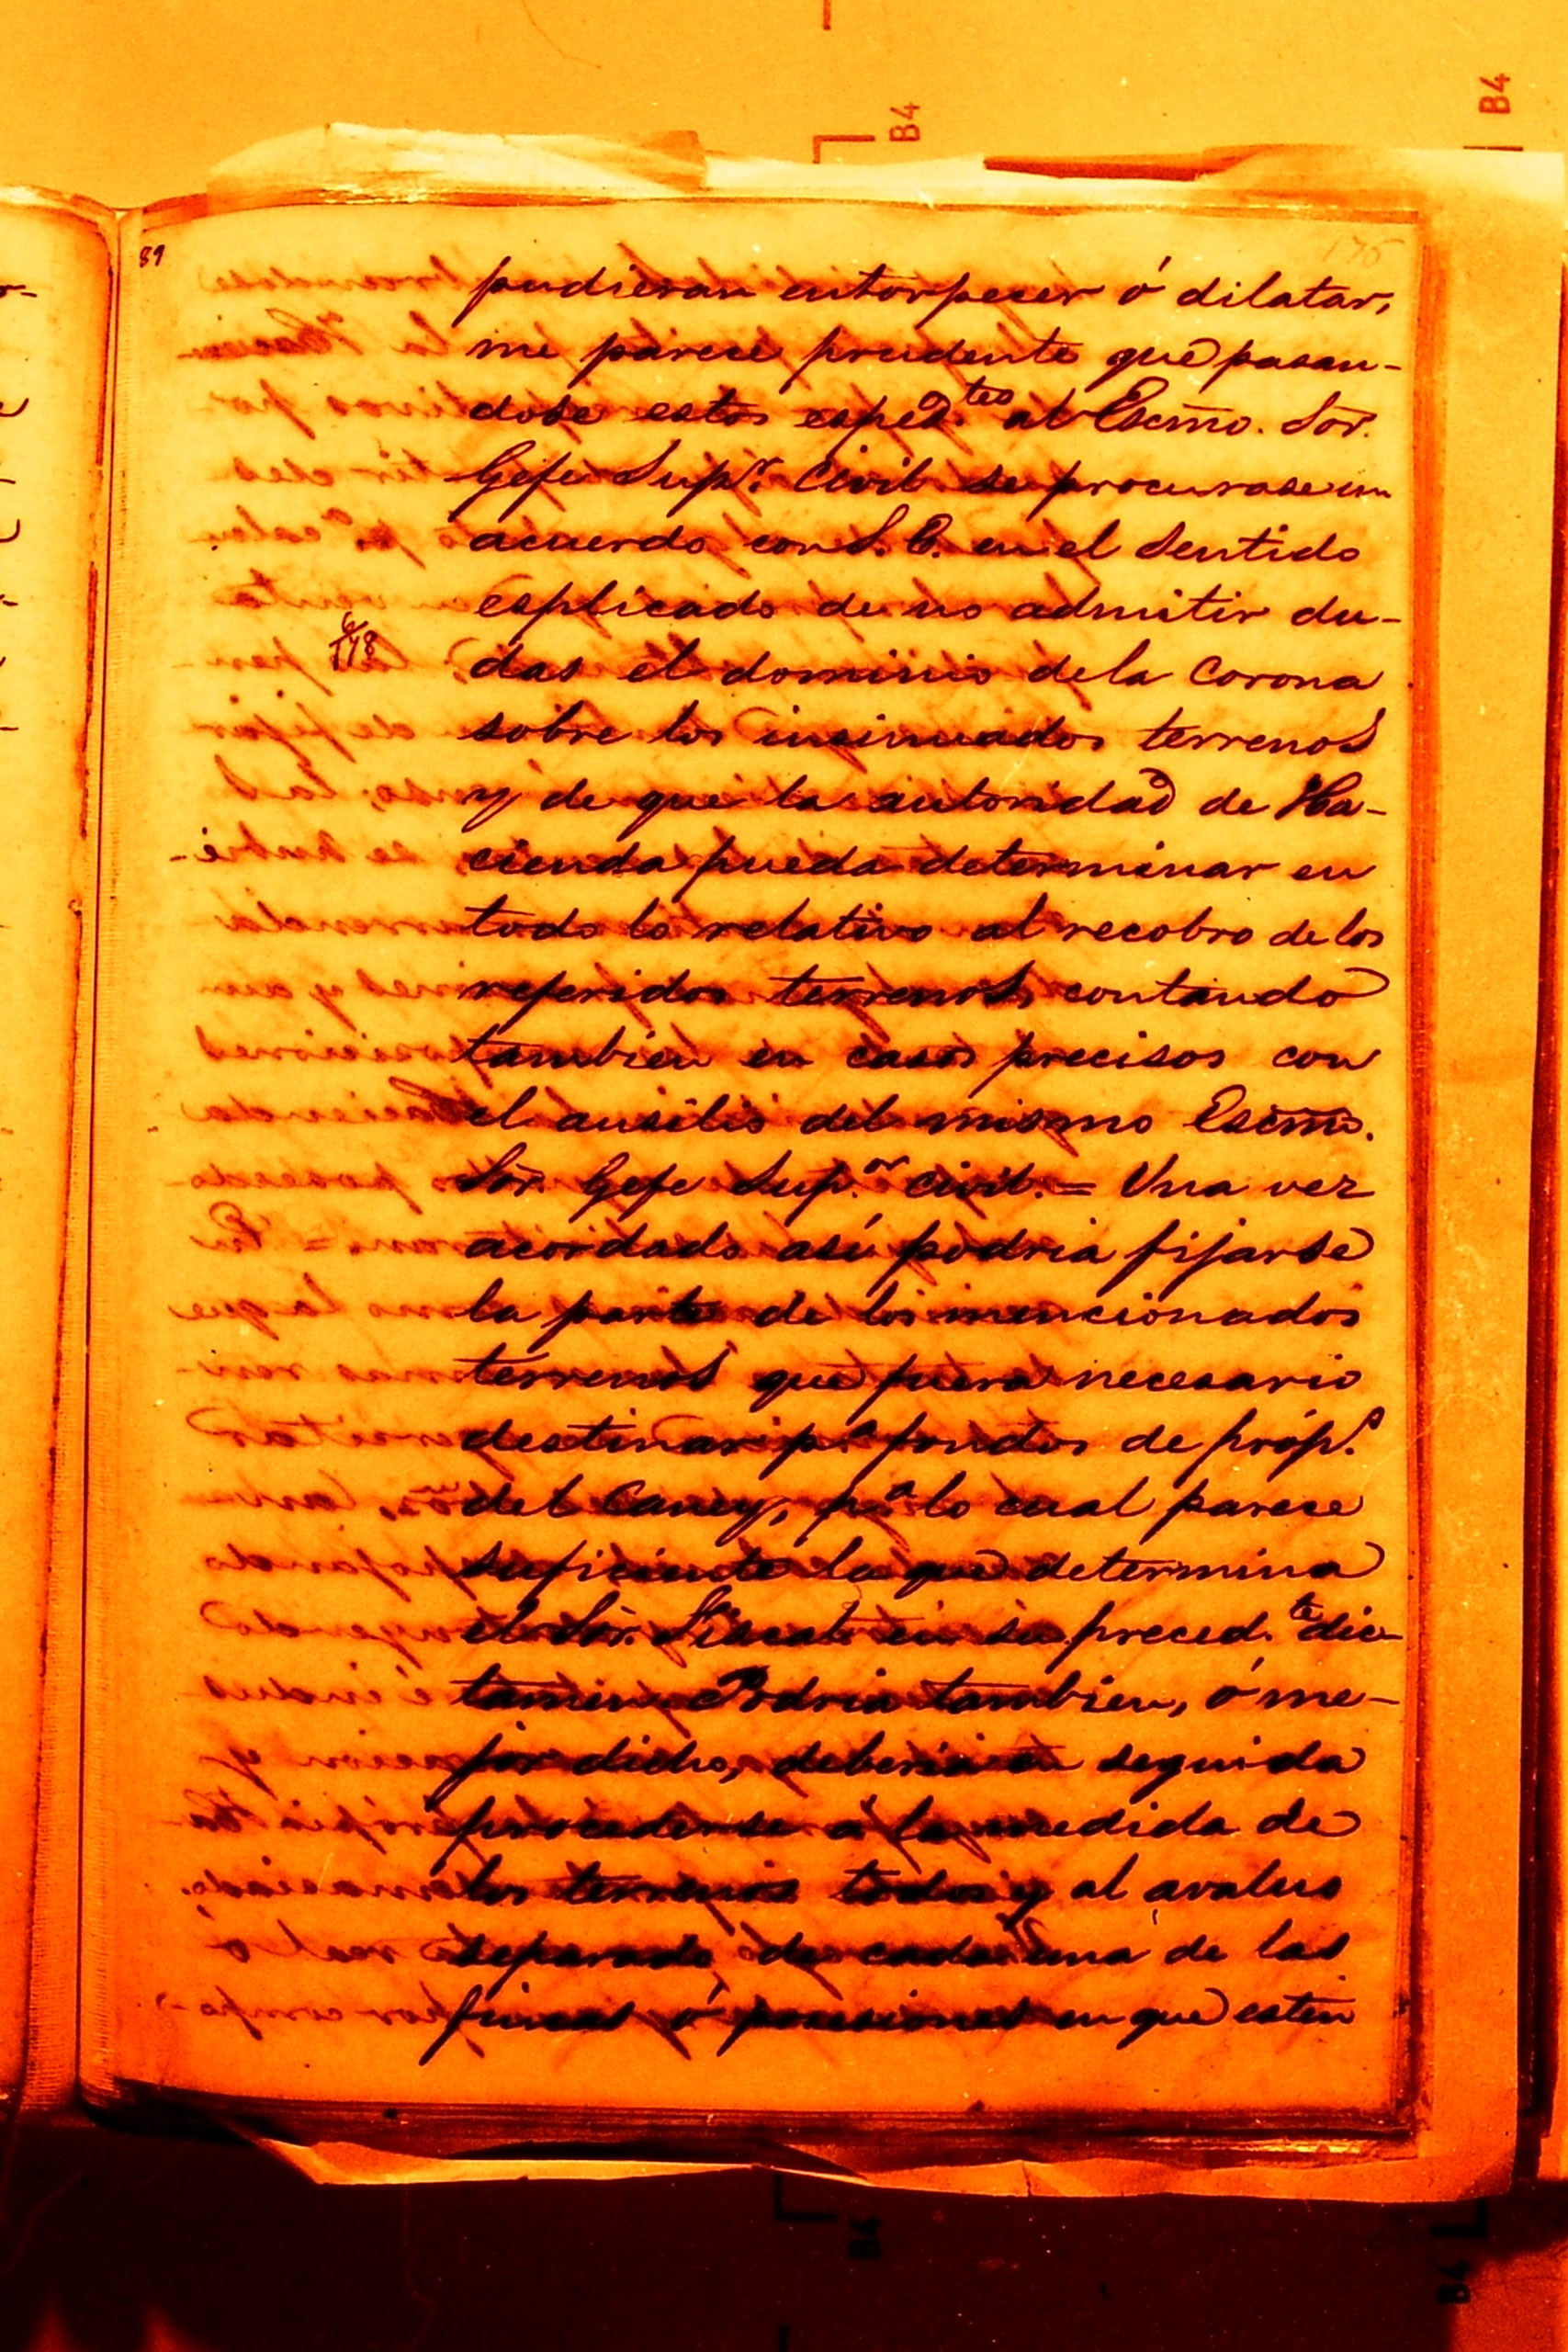 B4
B4
89
176
pudieran entorpecer ó dilatar,
me parece prudente que pasan-
dose estos esped.tes al Escmo. Sor.
Gefe Sup.r Civil se procurase un
acuerdo con S.E. en el sentido
esplicado de no admitir du-
das el dominio de la Corona
sobre los insinuados terrenos
y de que la autoridad de Ha-
cienda pueda determinar en
todo lo relativo al recobro de los
referidos terrenos, contando
tambien en casos precisos con
el ausilio del mismo Escmo.
Sor. Gefe Sup.or Civil. = Una vez
acordado asi podria fijarse
la parte de los mencionados
terrenos que fuera necesario
destinar p.a fondos de próp.s
del Caney, p.a lo cual parece
suficiente la que determina
el Sor. Fiscal en su preced.te dic-
tamen. Podria tambien, ó me-
jor dicho, deberia en seguida
procederse á la medida de
los terrenos todos y al avaluo
separado de cada una de las
fincas ó posesiones en que esten
B4
B4